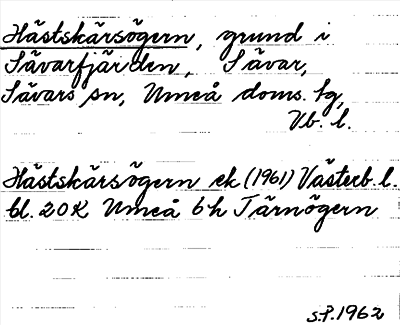 Hästskärsögern, grund i
Sävarfjärden, Sävar,
Sävars sn, Umeå doms. tg,
Vb. l.
Hästskärsögern ek (1961) Västerb. l.
bl. 20K Umeå 6h Tärnögern
S.P. 1962